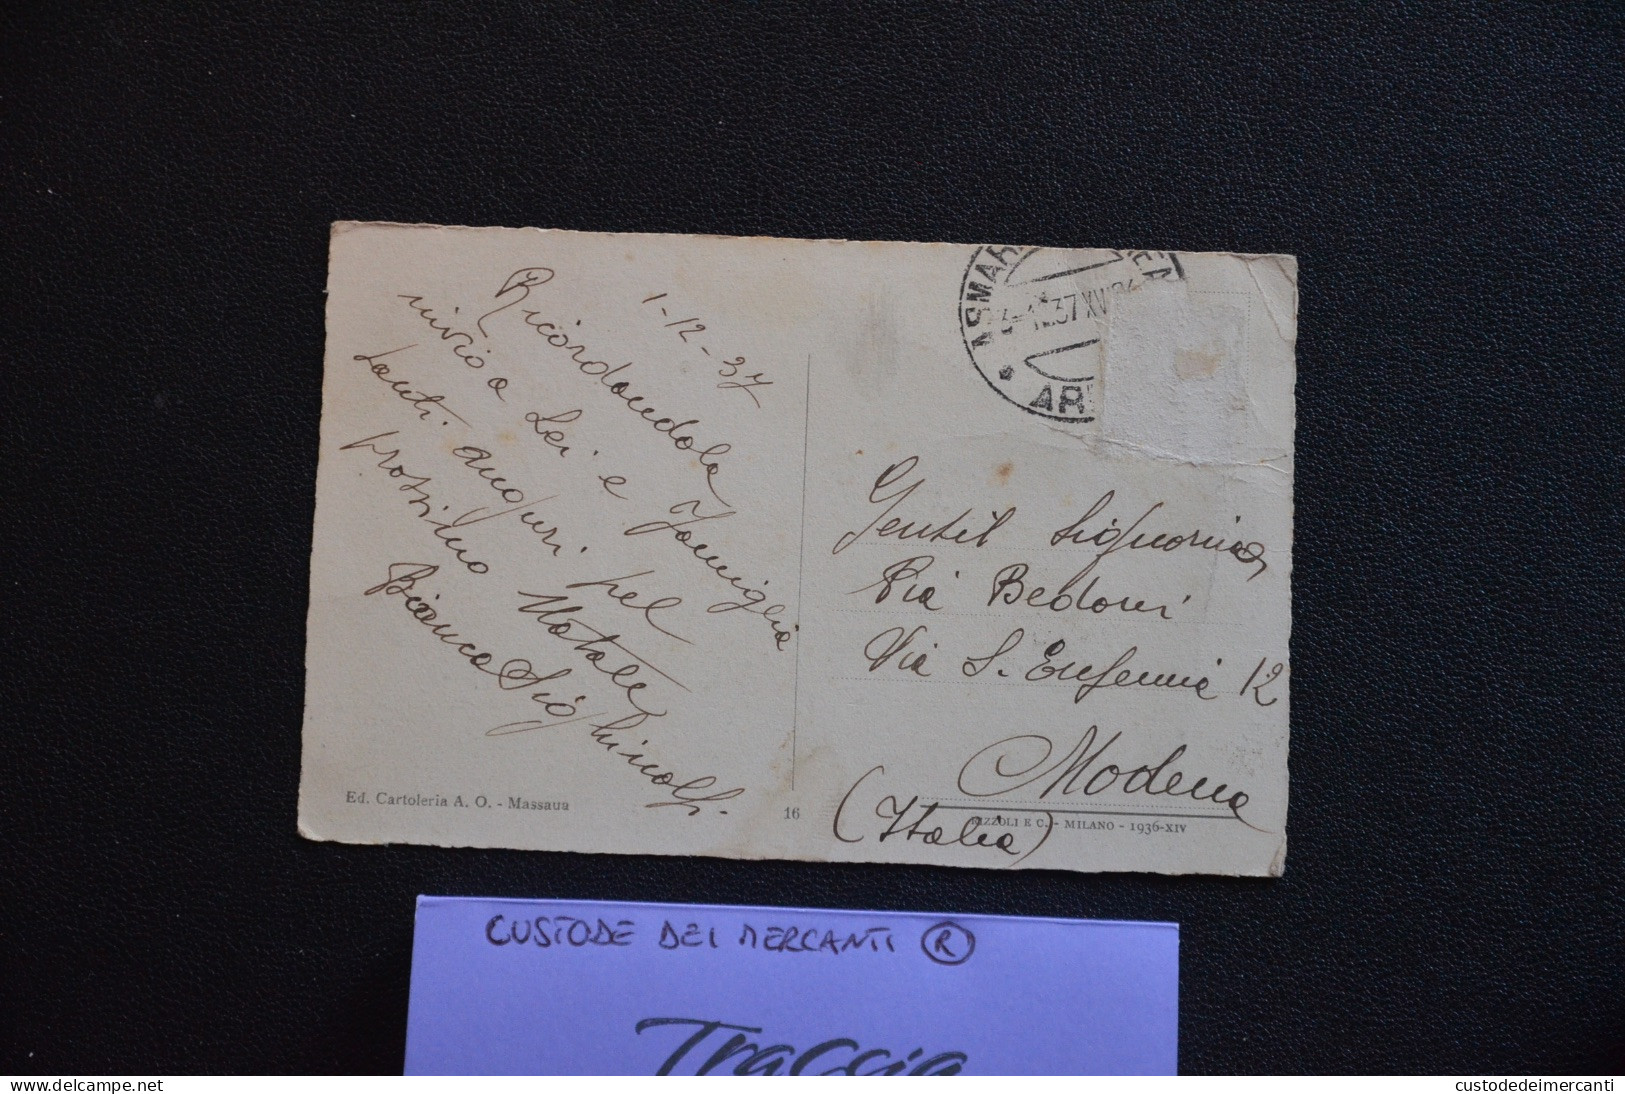 1-12-37
Ricordandola
invio a Lei e Famiglia
tanti auguri pel
prossimo Natale
Bianca
ASMARA
37 XV
Gentil Signorina
Pia Bedoni
Via S. Eufemia 12
Modena
(Italia)
Ed. Cartoleria A. O. - Massaua
16
RIZZOLI E C. - MILANO - 1936-XIV
CUSTODE DEI MERCANTI ®
Traccia
delcampe.net
custodedeimercanti